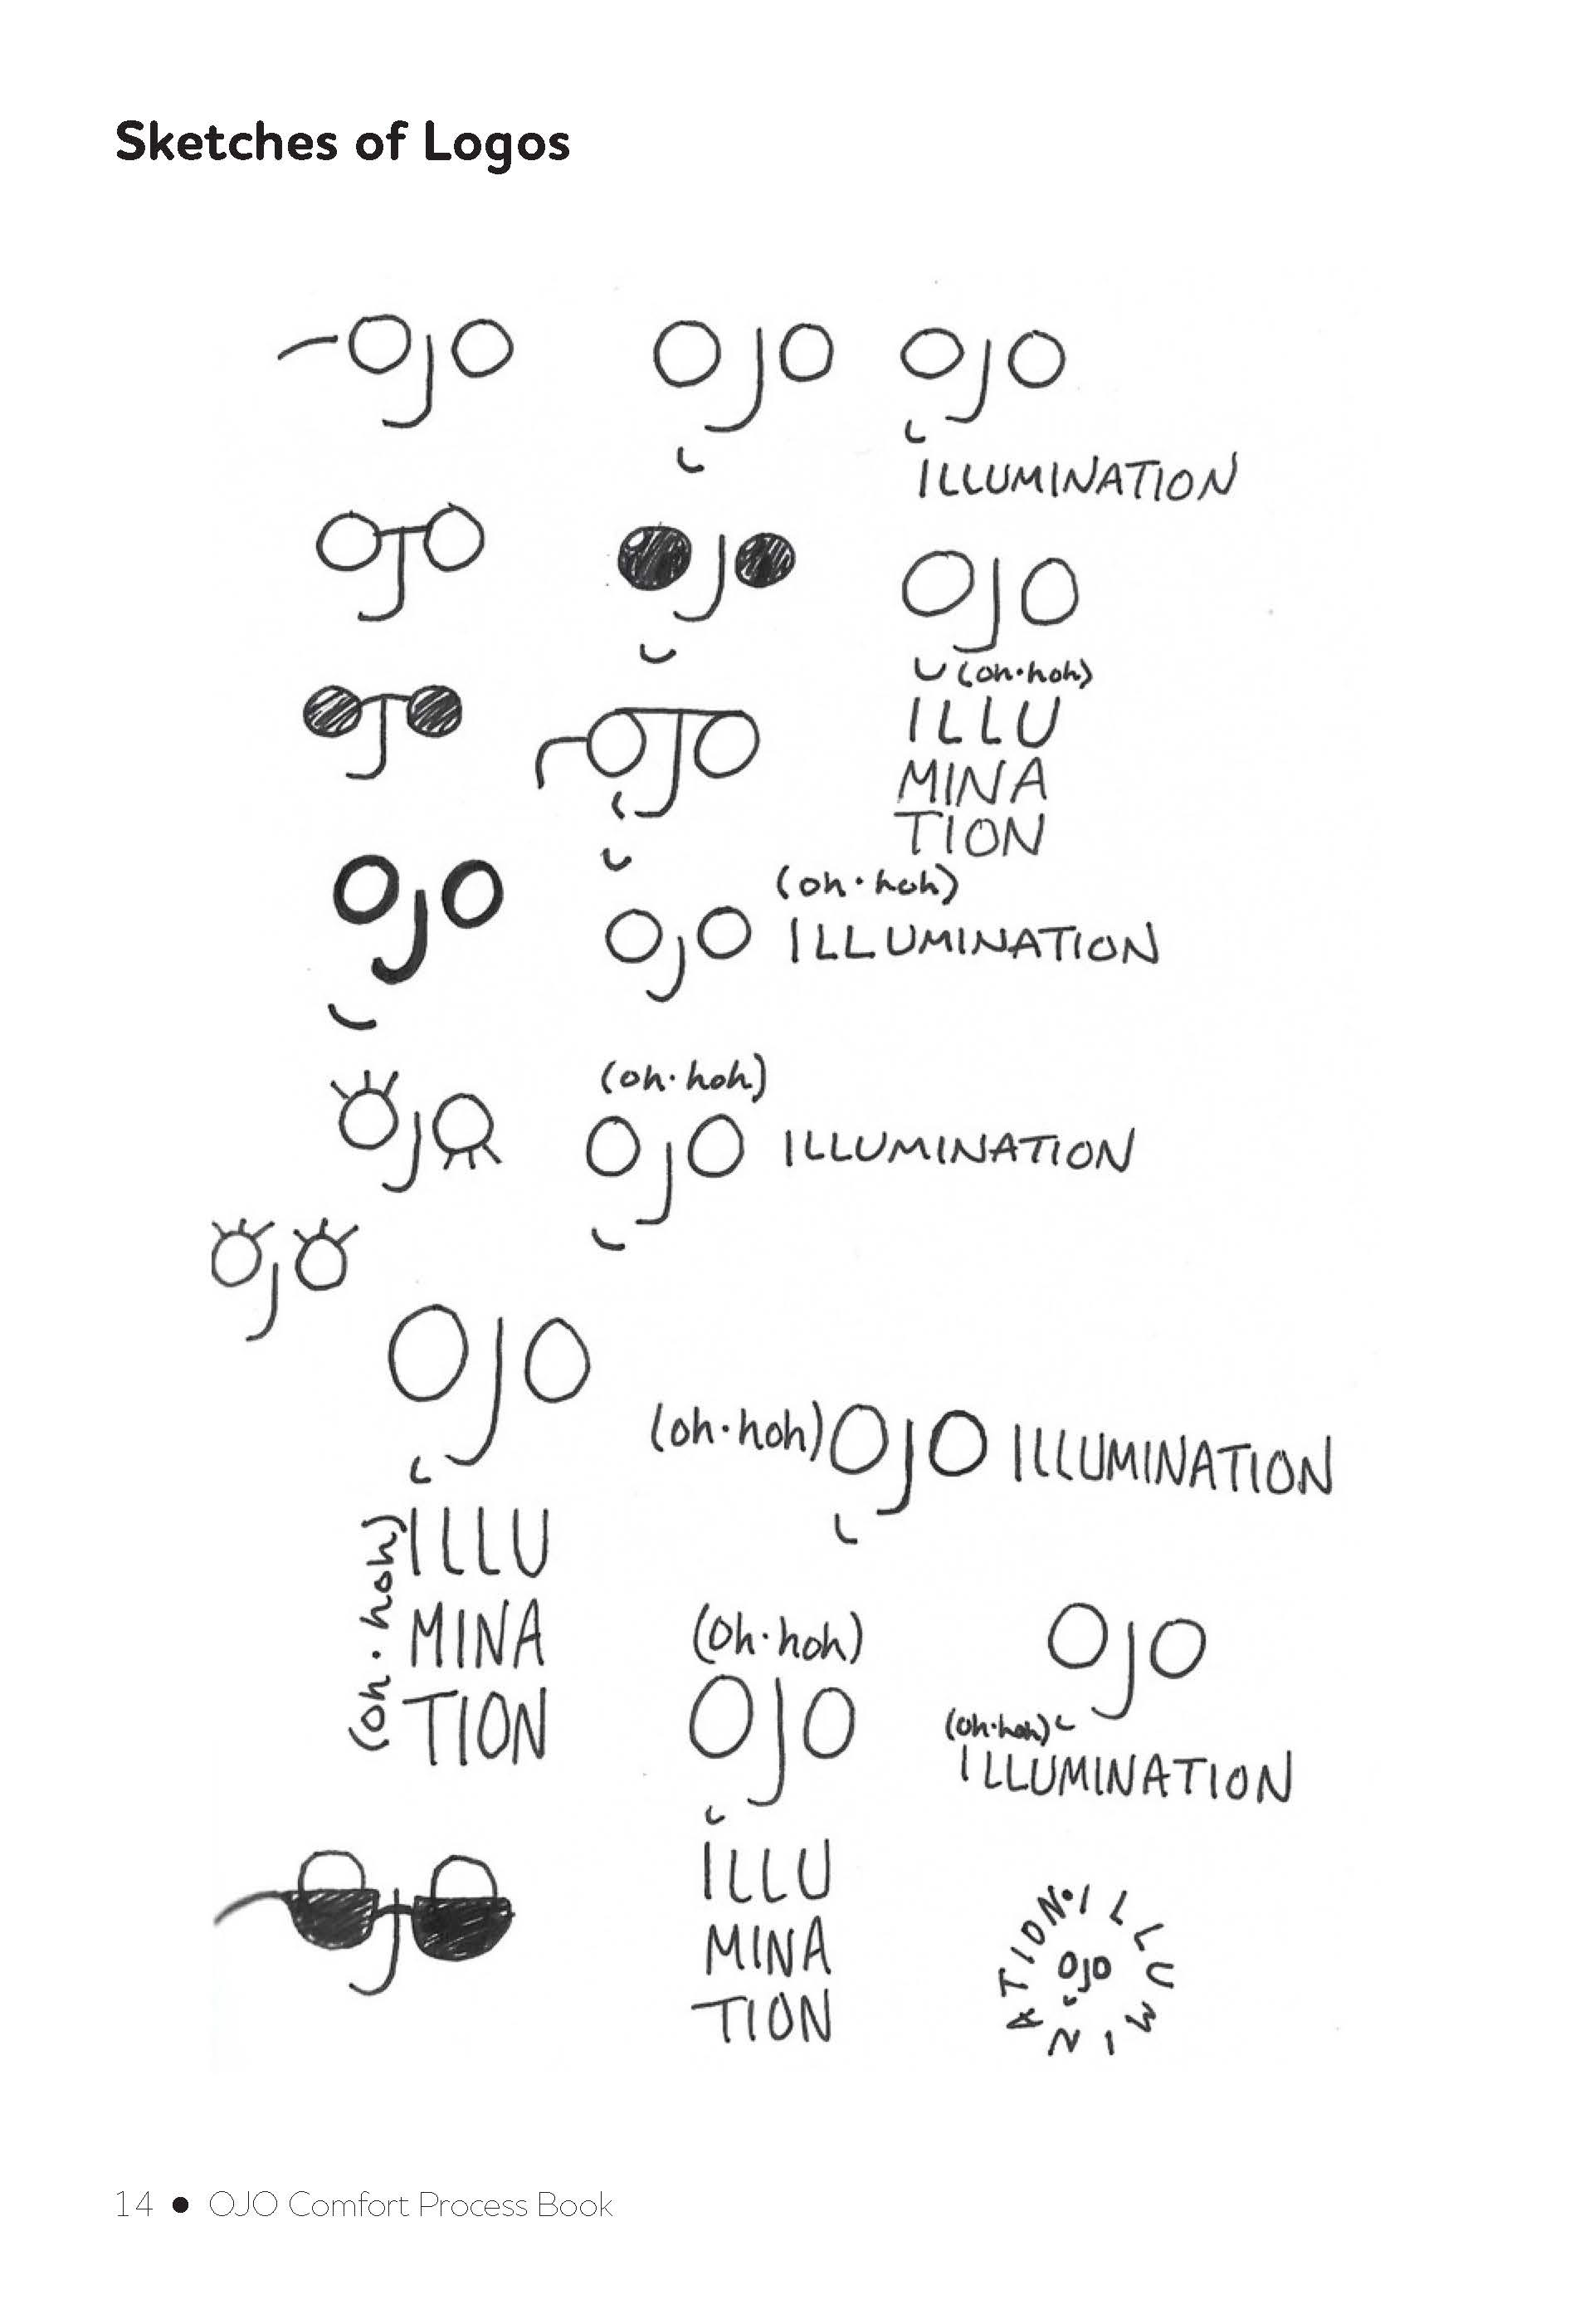 Sketches of Logos
OJO
OJO
OJO
ILLUMINATION
OJO
OJO
OJO
(oh·hoh)
ILLU
MINA
TION
OJO
OJO
OJO
(oh·hoh)
OJO ILLUMINATION
OJO
(oh·hoh)
OJO ILLUMINATION
OJO
OJO
(oh·hoh)
ILLU
MINA
TION
(oh·hoh) OJO ILLUMINATION
(oh·hoh)
OJO
ILLU
MINA
TION
OJO
(oh·hoh)
ILLUMINATION
OJO
ILLUMINATION·
OJO
14 • OJO Comfort Process Book